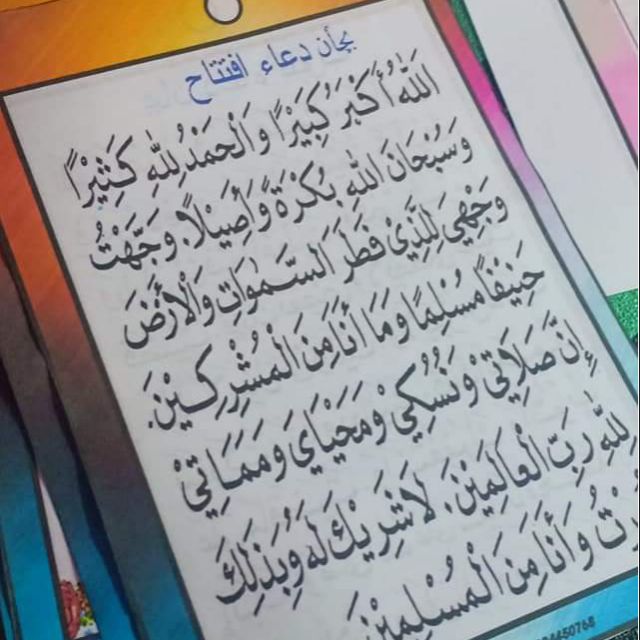 بجأن دعاء افتتاح
اَللّٰهُ أَكْبَرُ كَبِيْرًا وَالْحَمْدُ لِلّٰهِ كَثِيْرًا
وَسُبْحَانَ اللّٰهِ بُكْرَةً وَأَصِيْلًا. وَجَّهْتُ
وَجْهِيَ لِلَّذِيْ فَطَرَ السَّمٰوَاتِ وَالْأَرْضَ
حَنِيْفًا مُسْلِمًا وَمَا أَنَا مِنَ الْمُشْرِكِيْنَ.
إِنَّ صَلَاتِيْ وَنُسُكِيْ وَمَحْيَايَ وَمَمَاتِيْ
لِلّٰهِ رَبِّ الْعَالَمِيْنَ، لَا شَرِيْكَ لَهُ وَبِذٰلِكَ
وَأَنَا مِنَ الْمُسْلِمِيْنَ